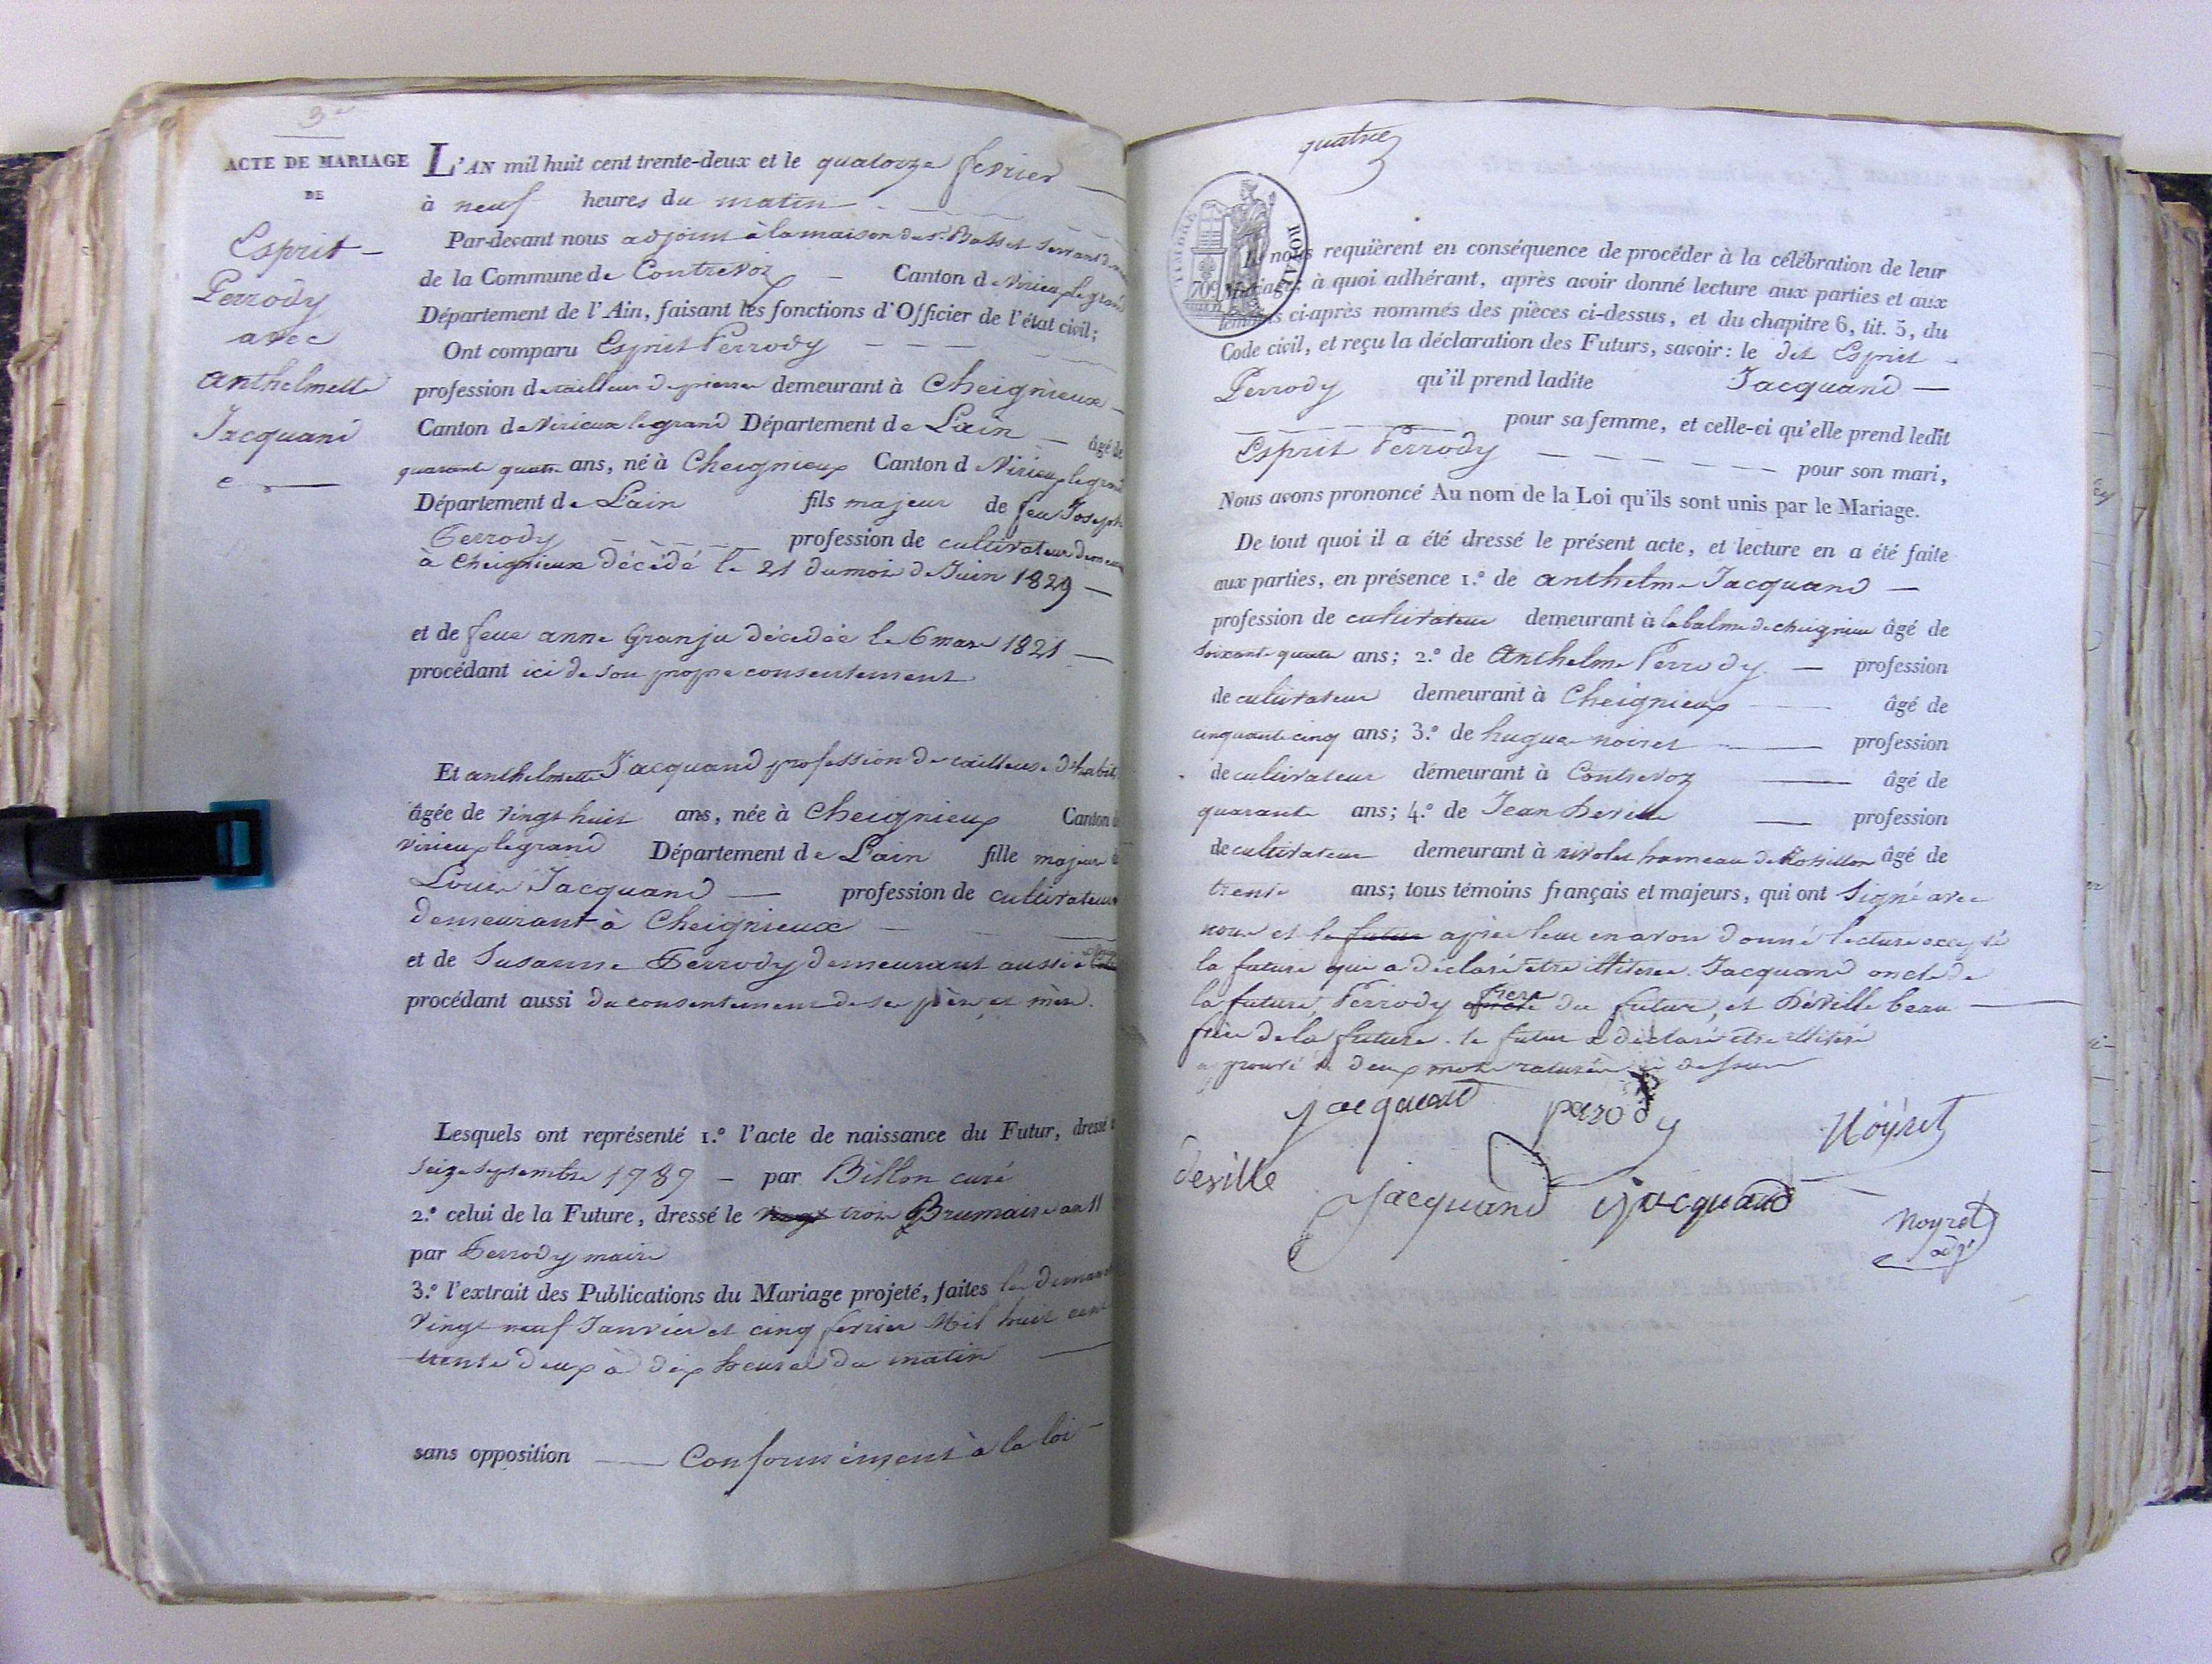 3e
ACTE DE MARIAGE
DE
Esprit
Perrody
avec
anthelmette
Jacquand
L'AN mil huit cent trente-deux et le quatorze fevrier
à neuf heures du matin
Par-devant nous adjoint à la maison du Sr. Basset servant de
de la Commune de Contrevoz Canton de Virieu le grand
Département de l'Ain, faisant les fonctions d'Officier de l'état civil;
Ont comparu Esprit Perrody
profession de tailleur de pierre demeurant à Cheignieux
Canton de Virieux le grand Département de L'ain âgé de
quarante quatre ans, né à Cheignieux Canton d Virieux le grand
Département de L'ain fils majeur de feu Joseph
Perrody profession de cultivateur demeurant
à Cheignieux décédé le 21 du mois de Juin 1829
et de feue anne Granju décédée le 6 mars 1821
procédant ici de son propre consentement
Et anthelmette Jacquand profession de tailleuse d'habit
âgée de vingt huit ans, née à Cheignieux Canton
virieux le grand Département de L'ain fille majeure
Louis Jacquand profession de cultivateur
demeurant à Cheignieux
et de Susanne Perrody demeurant aussi à
procédant aussi du consentement de se père et mère.
Lesquels ont représenté 1.º l'acte de naissance du Futur, dressé
seize septembre 1787 par Billon curé
2.º celui de la Future, dressé le vingt trois Brumaire an 11
par Perrody maire
3.º l'extrait des Publications du Mariage projeté, faites les dimanches
vingt neuf Janvier et cinq fevrier Mil huit cent
trente deux à dix heures du matin
sans opposition Conformément à la loi
quatre
TIMBRE ROYAL
709
Et nous requièrent en conséquence de procéder à la célébration de leur
Mariage; à quoi adhérant, après avoir donné lecture aux parties et aux
témoins ci-après nommés des pièces ci-dessus, et du chapitre 6, tit. 5, du
Code civil, et reçu la déclaration des Futurs, savoir: le dit Esprit
Perrody qu'il prend ladite Jacquand
pour sa femme, et celle-ci qu'elle prend ledit
Esprit Perrody pour son mari,
Nous avons prononcé Au nom de la Loi qu'ils sont unis par le Mariage.
De tout quoi il a été dressé le présent acte, et lecture en a été faite
aux parties, en présence 1.º de anthelme Jacquand
profession de cultivateur demeurant à la balme de cheignieu âgé de
soixante quatre ans; 2.º de Anthelme Perrody profession
de cultivateur demeurant à Cheignieux âgé de
cinquante cinq ans; 3.º de hugue noiret profession
de cultivateur demeurant à Contrevoz âgé de
quarante ans; 4.º de Jean Deville profession
de cultivateur demeurant à rivolet hameau de Rossillon âgé de
trente ans; tous témoins français et majeurs, qui ont signé avec
nous et le futur après leur en avoir donné lecture excepté
la future qui a déclaré etre illiteree. Jacquand oncle de
la future, Perrody frere du futur, et Déville beau
frère de la future. le futur a déclaré etre illiteré
approuvé deux mots raturés ci dessus
jacquand parody Nöyret
deville Jacquand jacquand Noyret
adjt